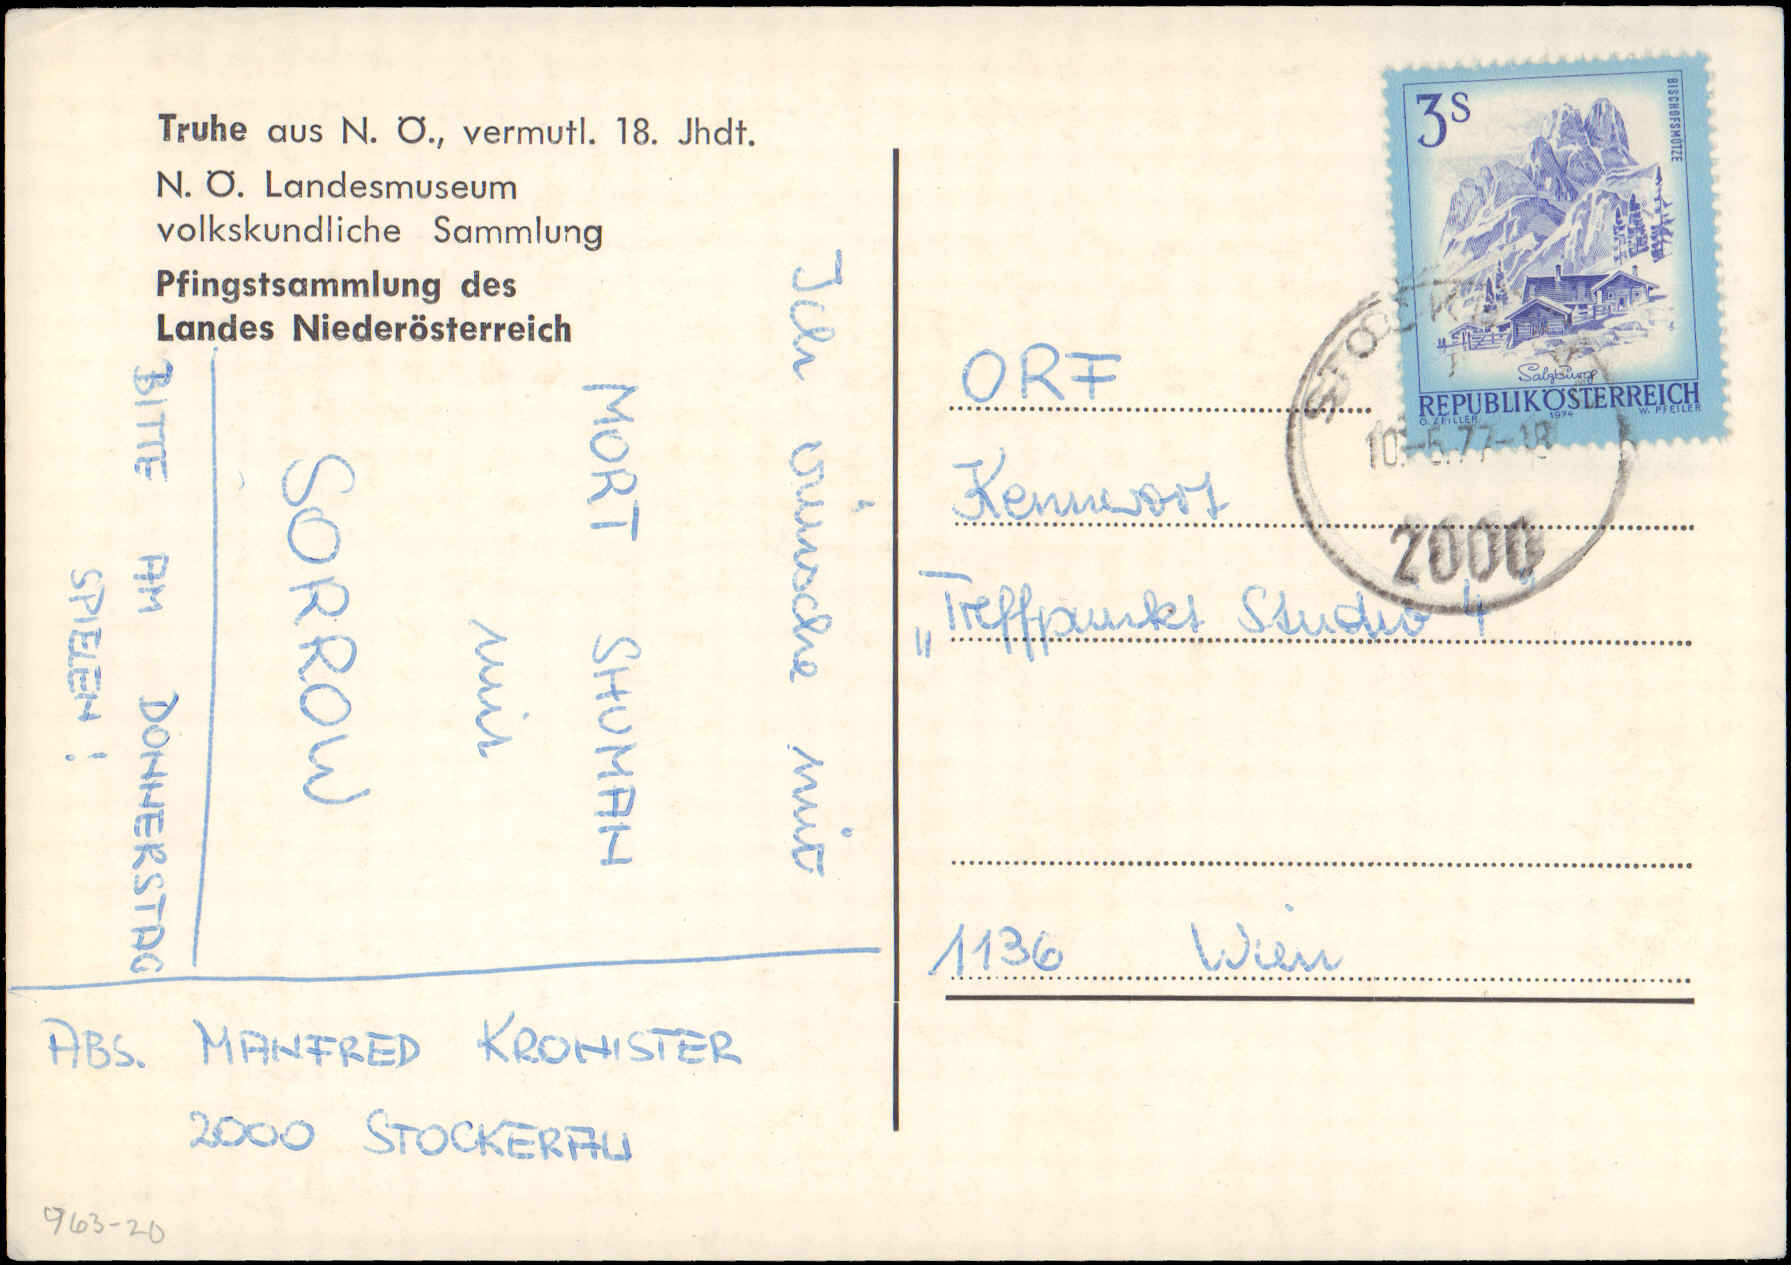 Truhe aus N. Ö., vermutl. 18. Jhdt.
N. Ö. Landesmuseum
volkskundliche Sammlung
Pfingstsammlung des
Landes Niederösterreich
Ich wünsche mir
MORT SHUMAN
mit
SORROW
BITTE AM DONNERSTAG
SPIELEN !
ABS. MANFRED KRONISTER
2000 STOCKERAU
963-20
3S
BISCHOFSMÜTZE
Salzburg
REPUBLIK ÖSTERREICH
O. ZEILLER 1974 W. PFEILER
STOCKERAU
10.-5.77-18
2000
ORF
Kennwort
„Treffpunkt Studio 4"
1136 Wien